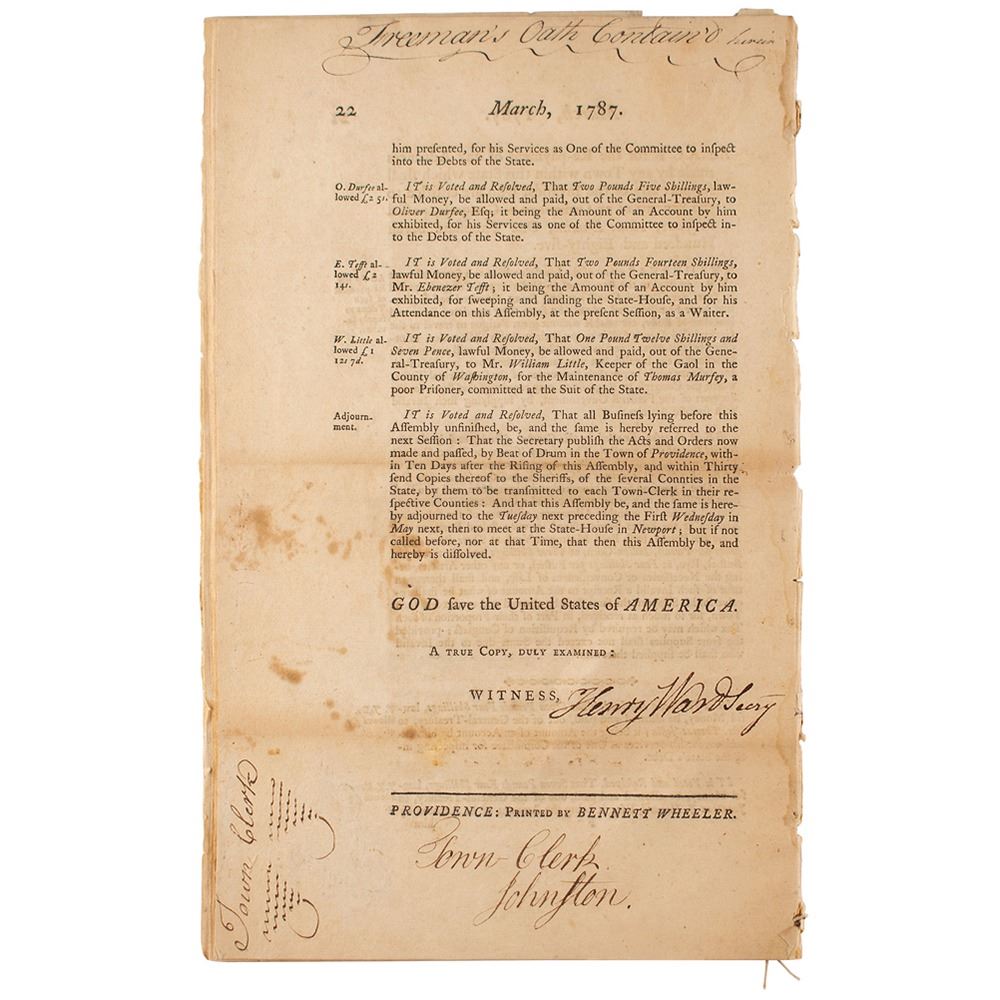 Freeman's Oath Contain'd herein
22 March, 1787.
him preſented, for his Services as One of the Committee to inſpect
into the Debts of the State.
O. Durfee al-
lowed £2 5s.
IT is Voted and Reſolved, That Two Pounds Five Shillings, law-
ful Money, be allowed and paid, out of the General-Treaſury, to
Oliver Durfee, Eſq; it being the Amount of an Account by him
exhibited, for his Services as one of the Committee to inſpect in-
to the Debts of the State.
E. Tefft al-
lowed £2
14s.
IT is Voted and Reſolved, That Two Pounds Fourteen Shillings,
lawful Money, be allowed and paid, out of the General-Treaſury, to
Mr. Ebenezer Tefft; it being the Amount of an Account by him
exhibited, for ſweeping and ſanding the State-Houſe, and for his
Attendance on this Aſſembly, at the preſent Seſſion, as a Waiter.
W. Little al-
lowed £1
12s 7d.
IT is Voted and Reſolved, That One Pound Twelve Shillings and
Seven Pence, lawful Money, be allowed and paid, out of the Gene-
ral-Treaſury, to Mr. William Little, Keeper of the Gaol in the
County of Waſhington, for the Maintenance of Thomas Murfey, a
poor Priſoner, committed at the Suit of the State.
Adjourn-
ment.
IT is Voted and Reſolved, That all Buſineſs lying before this
Aſſembly unfiniſhed, be, and the ſame is hereby referred to the
next Seſſion: That the Secretary publiſh the Acts and Orders now
made and paſſed, by Beat of Drum in the Town of Providence, with-
in Ten Days after the Riſing of this Aſſembly, and within Thirty
ſend Copies thereof to the Sheriffs, of the ſeveral Connties in the
State, by them to be tranſmitted to each Town-Clerk in their re-
ſpective Counties: And that this Aſſembly be, and the ſame is here-
by adjourned to the Tueſday next preceding the Firſt Wedneſday in
May next, then to meet at the State-Houſe in Newport; but if not
called before, nor at that Time, that then this Aſſembly be, and
hereby is diſſolved.
GOD ſave the United States of AMERICA.
A TRUE COPY, DULY EXAMINED:
WITNESS, Henry Ward Secry
PROVIDENCE: PRINTED BY BENNETT WHEELER.
Town-Clerk
Johnſton.
Town Clerk